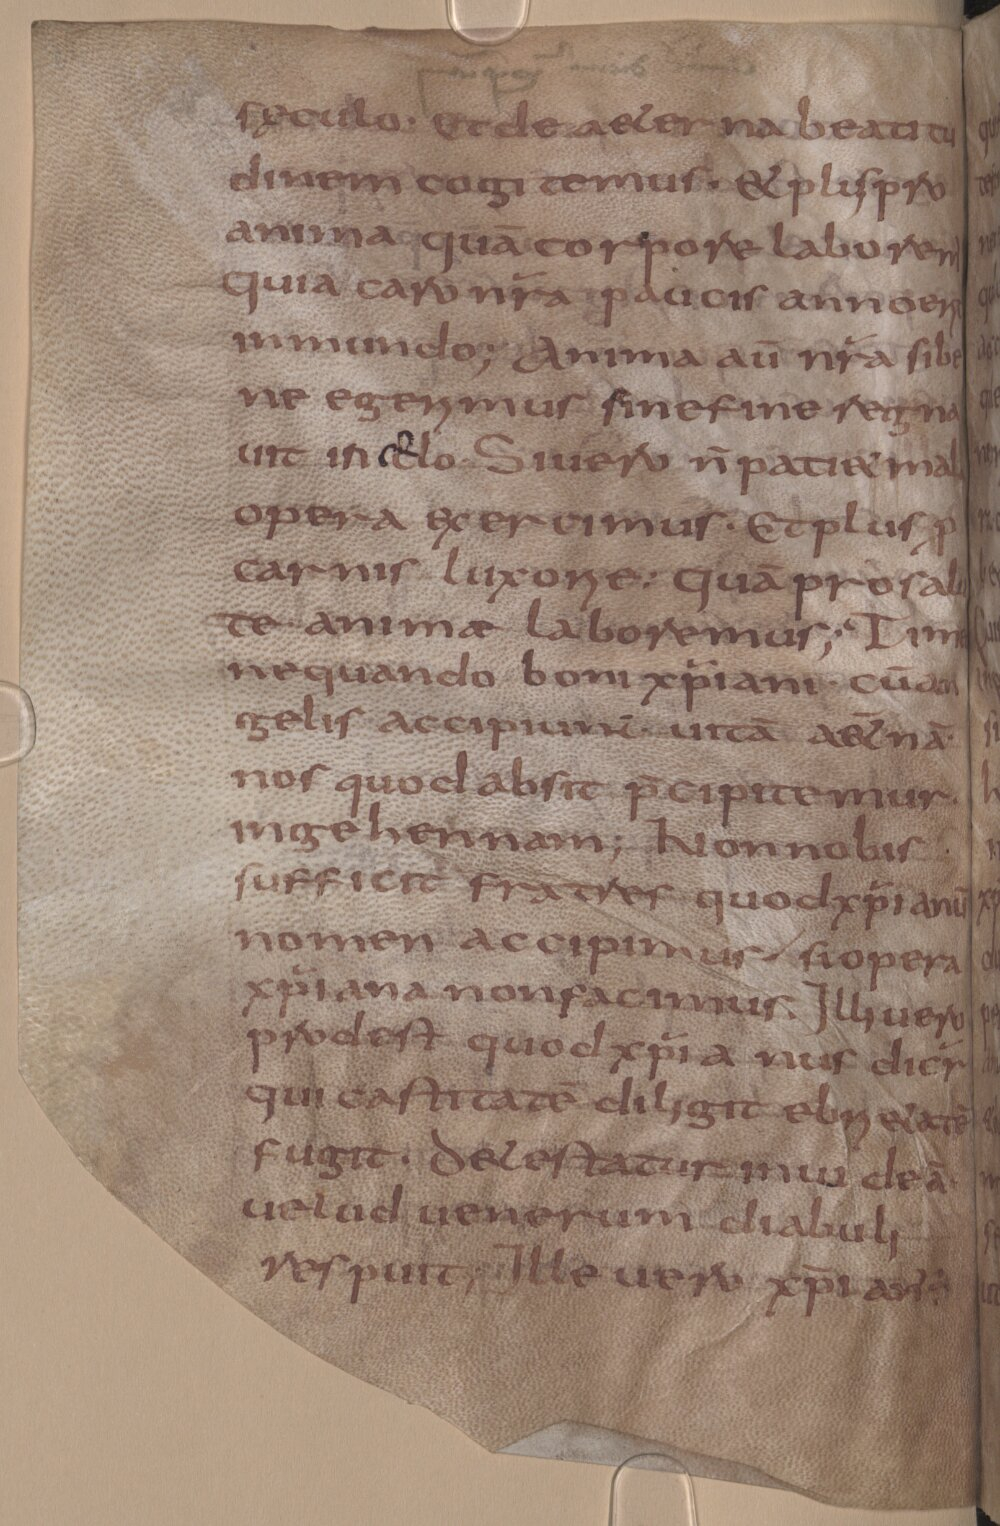 sęculo. Et de aeter na beati tu
dinem cogi temus. & plus pro
anima quā corpore laborem
Quia caro nr̄a paucis annoer
inmundo; Anima aū nr̄a sibe
ne egerimus sinefine regna
uit in celo. Siuero n̄ patiæ mal
opera exercimus. Et plus p
carnis luxorie. quā pro salu
te animæ laboremus; Time
nequando boni xp̄iani. cūan
gelis accipiunt̄. uitā aet̄nā.
nos quod absit p̄cipitemur.
ingehennam; Non nobis
sufficit fratres quodxp̄ianū
nomen accipimus. si opera
xp̄iana nonfacimus. Illi uero
prodest quod xp̄ia nus dicr̄
qui castitatē diligit ebrietatē
fugit. Detestatur inui deā.
uelud uenerum diabuli
respuit; Ille uero xp̄i an;